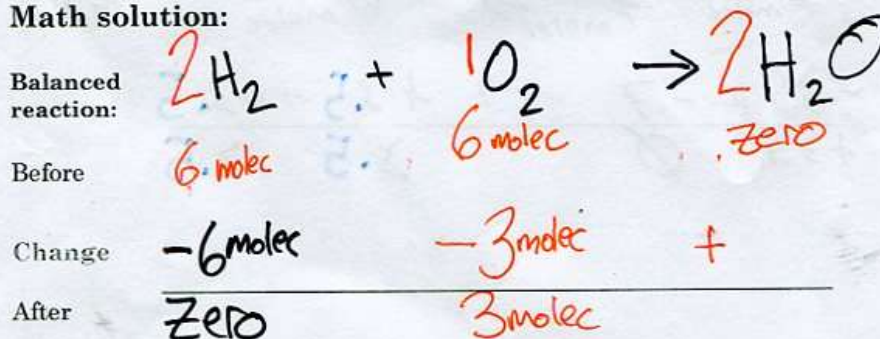 Math solution:
Balanced reaction: 2H₂ + 1O₂ → 2H₂O
Before 6 molec 6 molec zero
Change -6 molec -3 molec +
After Zero 3 molec